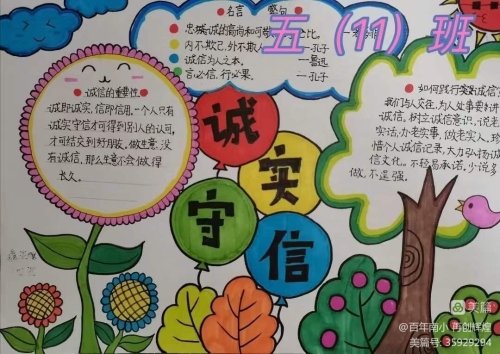 五（11）班
名言 警句
内不欺己，外不欺人
—孔子
诚信为人之本。
—鲁迅
言必信，行必果。
—孔子
诚信的重要性
诚即诚实，信即信用。一个人只有
诚实守信才可得到别人的认可，
才可结交到好朋友。做生意，没
有诚信，那么生意不会做得
长久。
诚
实
守
信
如何践行
我们与人交往，为人处事要
诚信，树立诚信意识，说老
实话，办老实事，做老实人，珍
惜个人诚信记录，大力弘扬诚
信文化。不轻易承诺，少说多
做，不逞强。
美篇
@百年南小 再创辉煌
美篇号：35929294